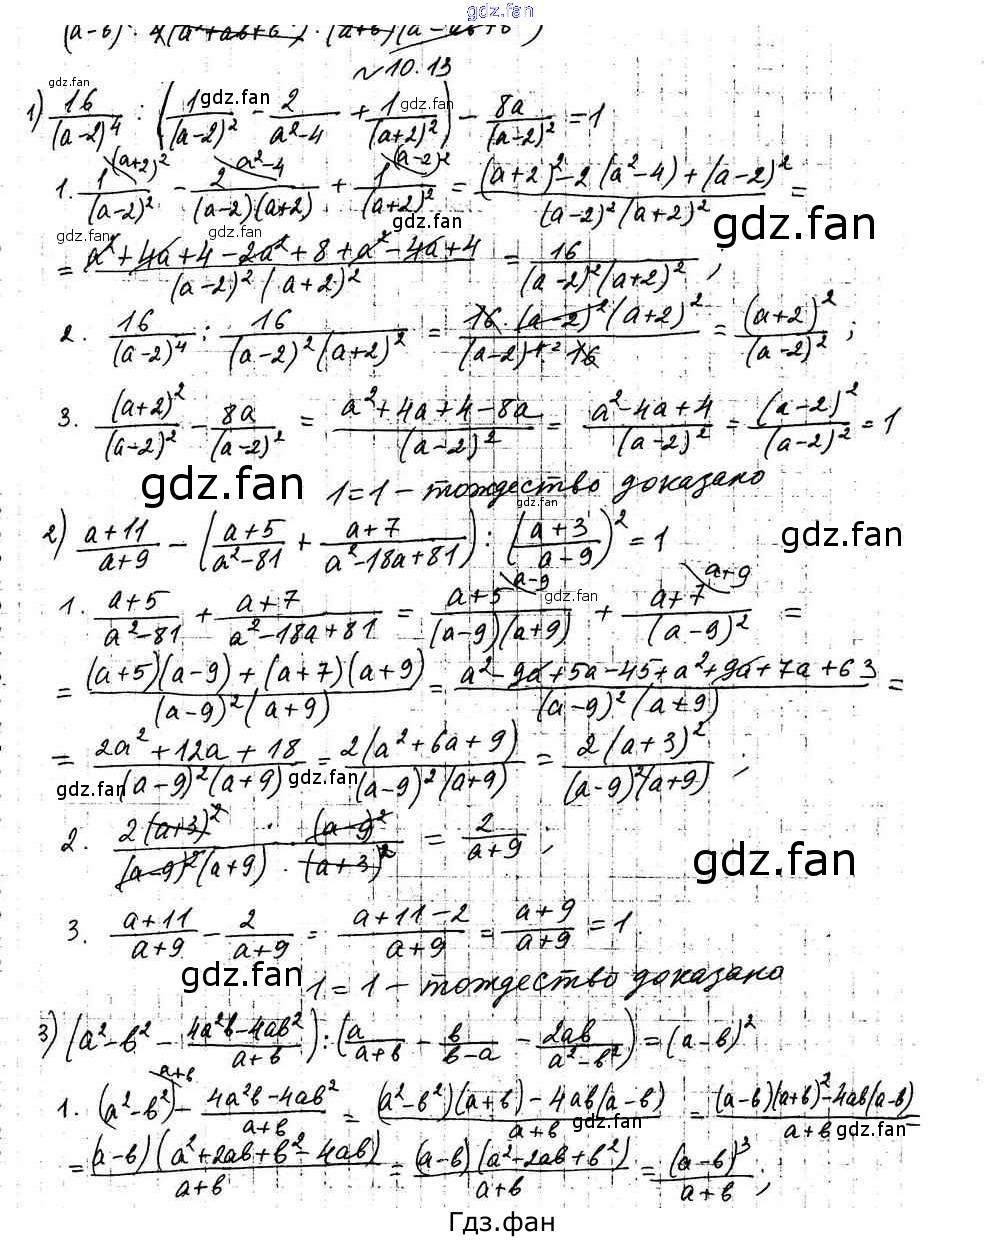 gdz.fan
(a-в) · 4(a²+aв+в²) · (a+в)(a²-aв+в²)
№10.13
gdz.fan
1) 16/(a-2)⁴ : (1/(a-2)² - 2/(a²-4) + 1/(a+2)²) - 8a/(a-2)² = 1
gdz.fan gdz.fan
1. 1/(a-2)² - 2/((a-2)(a+2)) + 1/(a+2)² = ((a+2)² - 2(a²-4) + (a-2)²)/((a-2)²(a+2)²) =
(a+2)² a²-4 (a-2)²
gdz.fan gdz.fan gdz.fan gdz.fan
= (a²+4a+4-2a²+8+a²-4a+4)/((a-2)²(a+2)²) = 16/((a-2)²(a+2)²) ;
2. 16/(a-2)⁴ : 16/((a-2)²(a+2)²) = (16·(a-2)²(a+2)²)/((a-2)⁴·² 16) = (a+2)²/(a-2)² ;
3. (a+2)²/(a-2)² - 8a/(a-2)² = (a²+4a+4-8a)/(a-2)² = (a²-4a+4)/(a-2)² = (a-2)²/(a-2)² = 1
gdz.fan
1=1 - тождество доказано
gdz.fan
2) (a+11)/(a+9) - ((a+5)/(a²-81) + (a+7)/(a²-18a+81)) : ((a+3)/(a-9))² = 1
gdz.fan
1. (a+5)/(a²-81) + (a+7)/(a²-18a+81) = (a+5)/((a-9)(a+9)) + (a+7)/(a-9)² =
a-9 a+9
gdz.fan
= ((a+5)(a-9)+(a+7)(a+9))/((a-9)²(a+9)) = (a²-9a+5a-45+a²+9a+7a+63)/((a-9)²(a+9)) =
= (2a²+12a+18)/((a-9)²(a+9)) = 2(a²+6a+9)/((a-9)²(a+9)) = 2(a+3)²/((a-9)²(a+9)) ;
gdz.fan gdz.fan
2. (2(a+3)² · (a-9)²)/((a-9)²(a+9) · (a+3)²) = 2/(a+9) ;
gdz.fan
3. (a+11)/(a+9) - 2/(a+9) = (a+11-2)/(a+9) = (a+9)/(a+9) = 1.
gdz.fan
1=1 - тождество доказано
3) (a²-в² - (4a²в-4aв²)/(a+в)) : (a/(a+в) - в/(в-a) - 2aв/(a²-в²)) = (a-в)²
1. (a²-в²) - (4a²в-4aв²)/(a+в) = ((a²-в²)(a+в)-4aв(a-в))/(a+в) = ((a-в)(a+в)²-4aв(a-в))/(a+в) =
a+в
gdz.fan
= (a-в)(a²+2aв+в²-4aв)/(a+в) = (a-в)(a²-2aв+в²)/(a+в) = (a-в)³/(a+в) ;
Гдз.фан